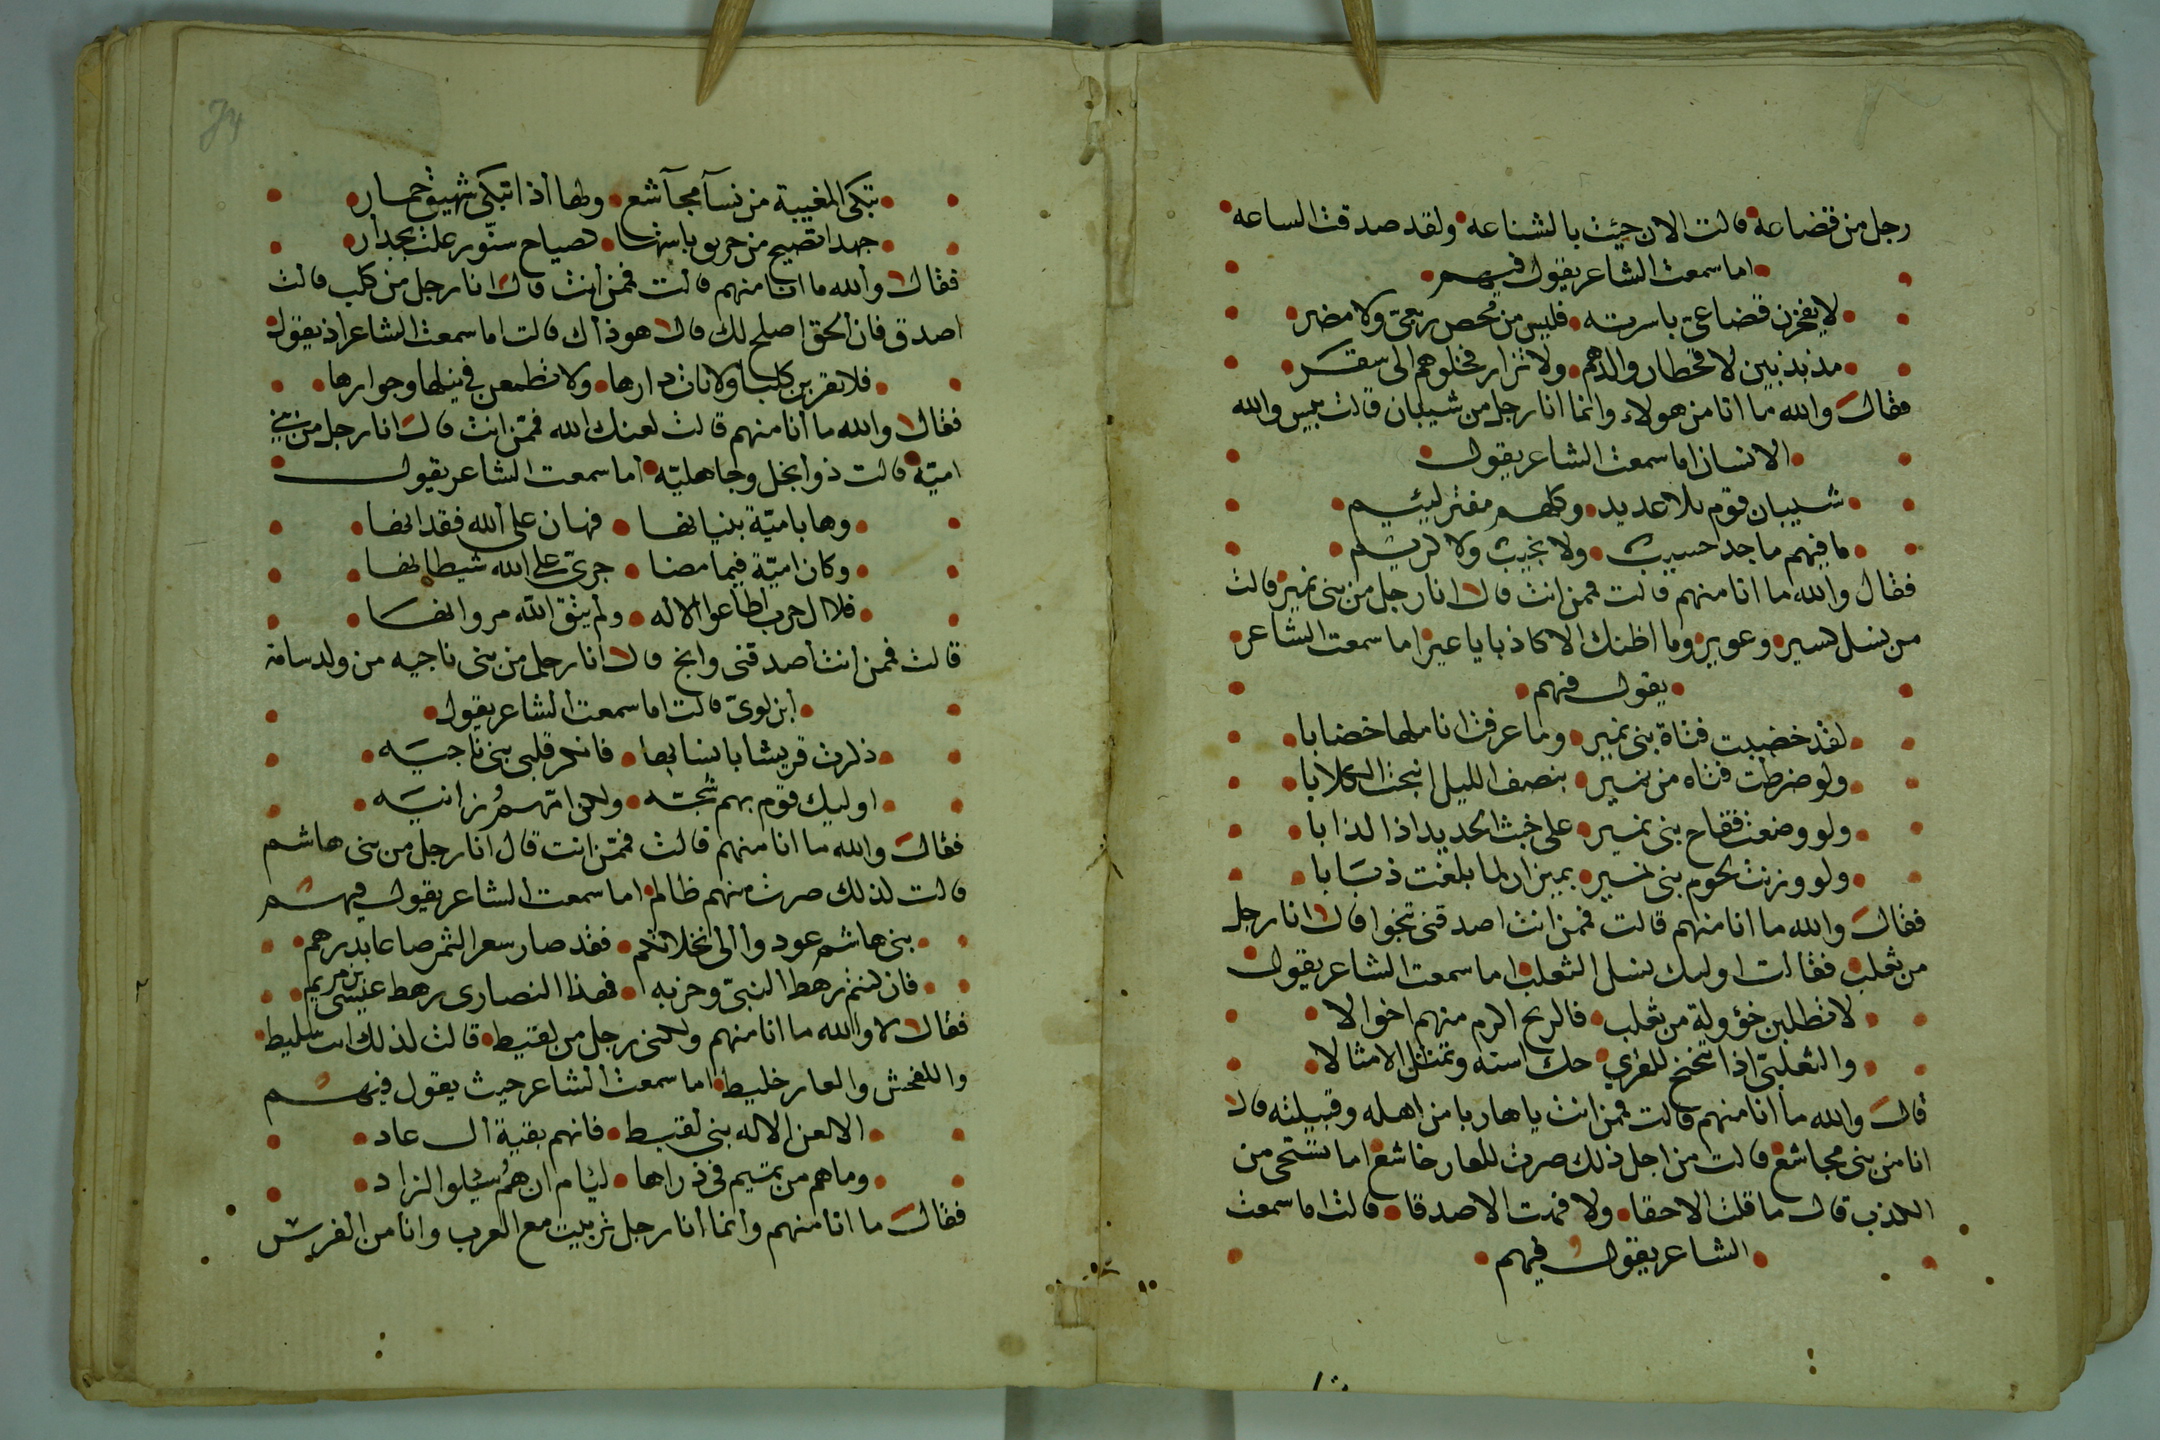 رجل من قضاعة قالت الان جيئت بالشناعه ولقد صدقت الساعه
اما سمعت الشاعر يقول فيهم
لا يفخرن قضاعيّ باسرته فليس من محص ربعيّ ولا مضر
مذبذبين لا قحطان والدهم ولا نزار فخلوهم الى سقر
فقال والله ما انا من هولاء وانما انا رجل من شيبان قالت بيس والله
الانسان اما سمعت الشاعر يقول
شيبان قوم بلا عديد وكلهم مفتر ليئيم
ما فيهم ماجد حسيب ولا نجيب ولا كريم
فقال والله ما انا منهم قالت فممن انت قال انا رجل من بني نمير قالت
من نسل كسير وعوير وما اظنك الا كاذبا يا عير اما سمعت الشاعر
يقول فيهم
لقد خضبت فتاة بني نمير وما عرفت اناملها خضابا
ولو ضرطت فتاه من نمير بنصف الليل انبحت الكلابا
ولو وضعت فقاح بني نمير على خبث الحديد اذا لذابا
ولو وزنت لحوم بني نمير بميزان لما بلغت ذبابا
فقال والله ما انا منهم قالت فممن انت اصدقني تنجوا قال انا رجل
من ثعلب فقالت اوليك نسل الثعلب اما سمعت الشاعر يقول
لا تطلبن خؤولة من تغلب فالزنج اكرم منهم اخوالا
والثعلبيّ اذا تنحنح للقرى حك استه وتمثل الامثالا
قال والله ما انا منهم قالت فممن انت يا هاربا من اهله وقبيلته قال
انا من بني مجاشع قالت من اجل ذلك صرت للعار خاشع اما تستحى من
الكذب قال ما قلت الا حقا ولا فهت الا صدقا قالت اما سمعت
الشاعر يقول فيهم
تبكى المغيبة من نسآ مجآشع ولها أذا تبكى شهيق حمار
جهدا تصيح من باستها كصياح سنّور علت بجدار
فقال والله ما انا منهم قالت فممن أنت قال انا رجل من كلب قالت
اصدق فان الحق اصلح لك قال هو ذاك قالت اما سمعت الشاعر أذ يقول
فلا تقربن كلبا ولا تات دارها ولا تطمعن في نيلها وجوارها
فقال والله ما أنا منهم قالت لعنك الله فممّن انت قال انا رجل من بني
اميّة قالت ذوا بخل وجاهليّه أما سمعت الشاعر يقول
وها باميّة بنيانها فهان على ألله فقدانها
وكان اميّة فيما مضا جرىّ على الله شيطانها
فلا ال حرب أطاعوا الاله ولم يثق الله مروانها
قالت فممن أنت أصدقني وانج قال أنا رجل من بني ناجيه من ولد سامة
أبن لوىّ قالت اما سمعت ألشاعر يقول
ذكرت قريشا بانسابها فانكر قلبي بني ناجيَه
اوليك قوم بهم شجّه ولكن امّهم زانيَه
فقال والله ما انا منهم قالت فممّن انت قال أنا رجل من بني هاشم
قالت لذلك صرت منهم ظالم اما سمعت ألشاعر يقول فيهم
بني هاشم عودوا ألى نخلاتكم فقد صار سعر التمر صاعا بدرهم
فان كنتم رهط ألنبيّ وحزبه فهذا النصارى رهط عيسى بن مريم
فقال لا والله ما انا منهم ولكني رجل من لقيط قالت لذلك انت سليط
واللفحش والعار خليط اما سمعت ألشاعر حيث يقول فيهم
الا لعن الاله بني لقيط فانهم بقية أل عاد
وما هم من تميم في ذراها ليئام ان هم سيلوا الزاد
فقال ما انا منهم وأنما أنا رجل تربيت مع العرب وانا من ألفرس